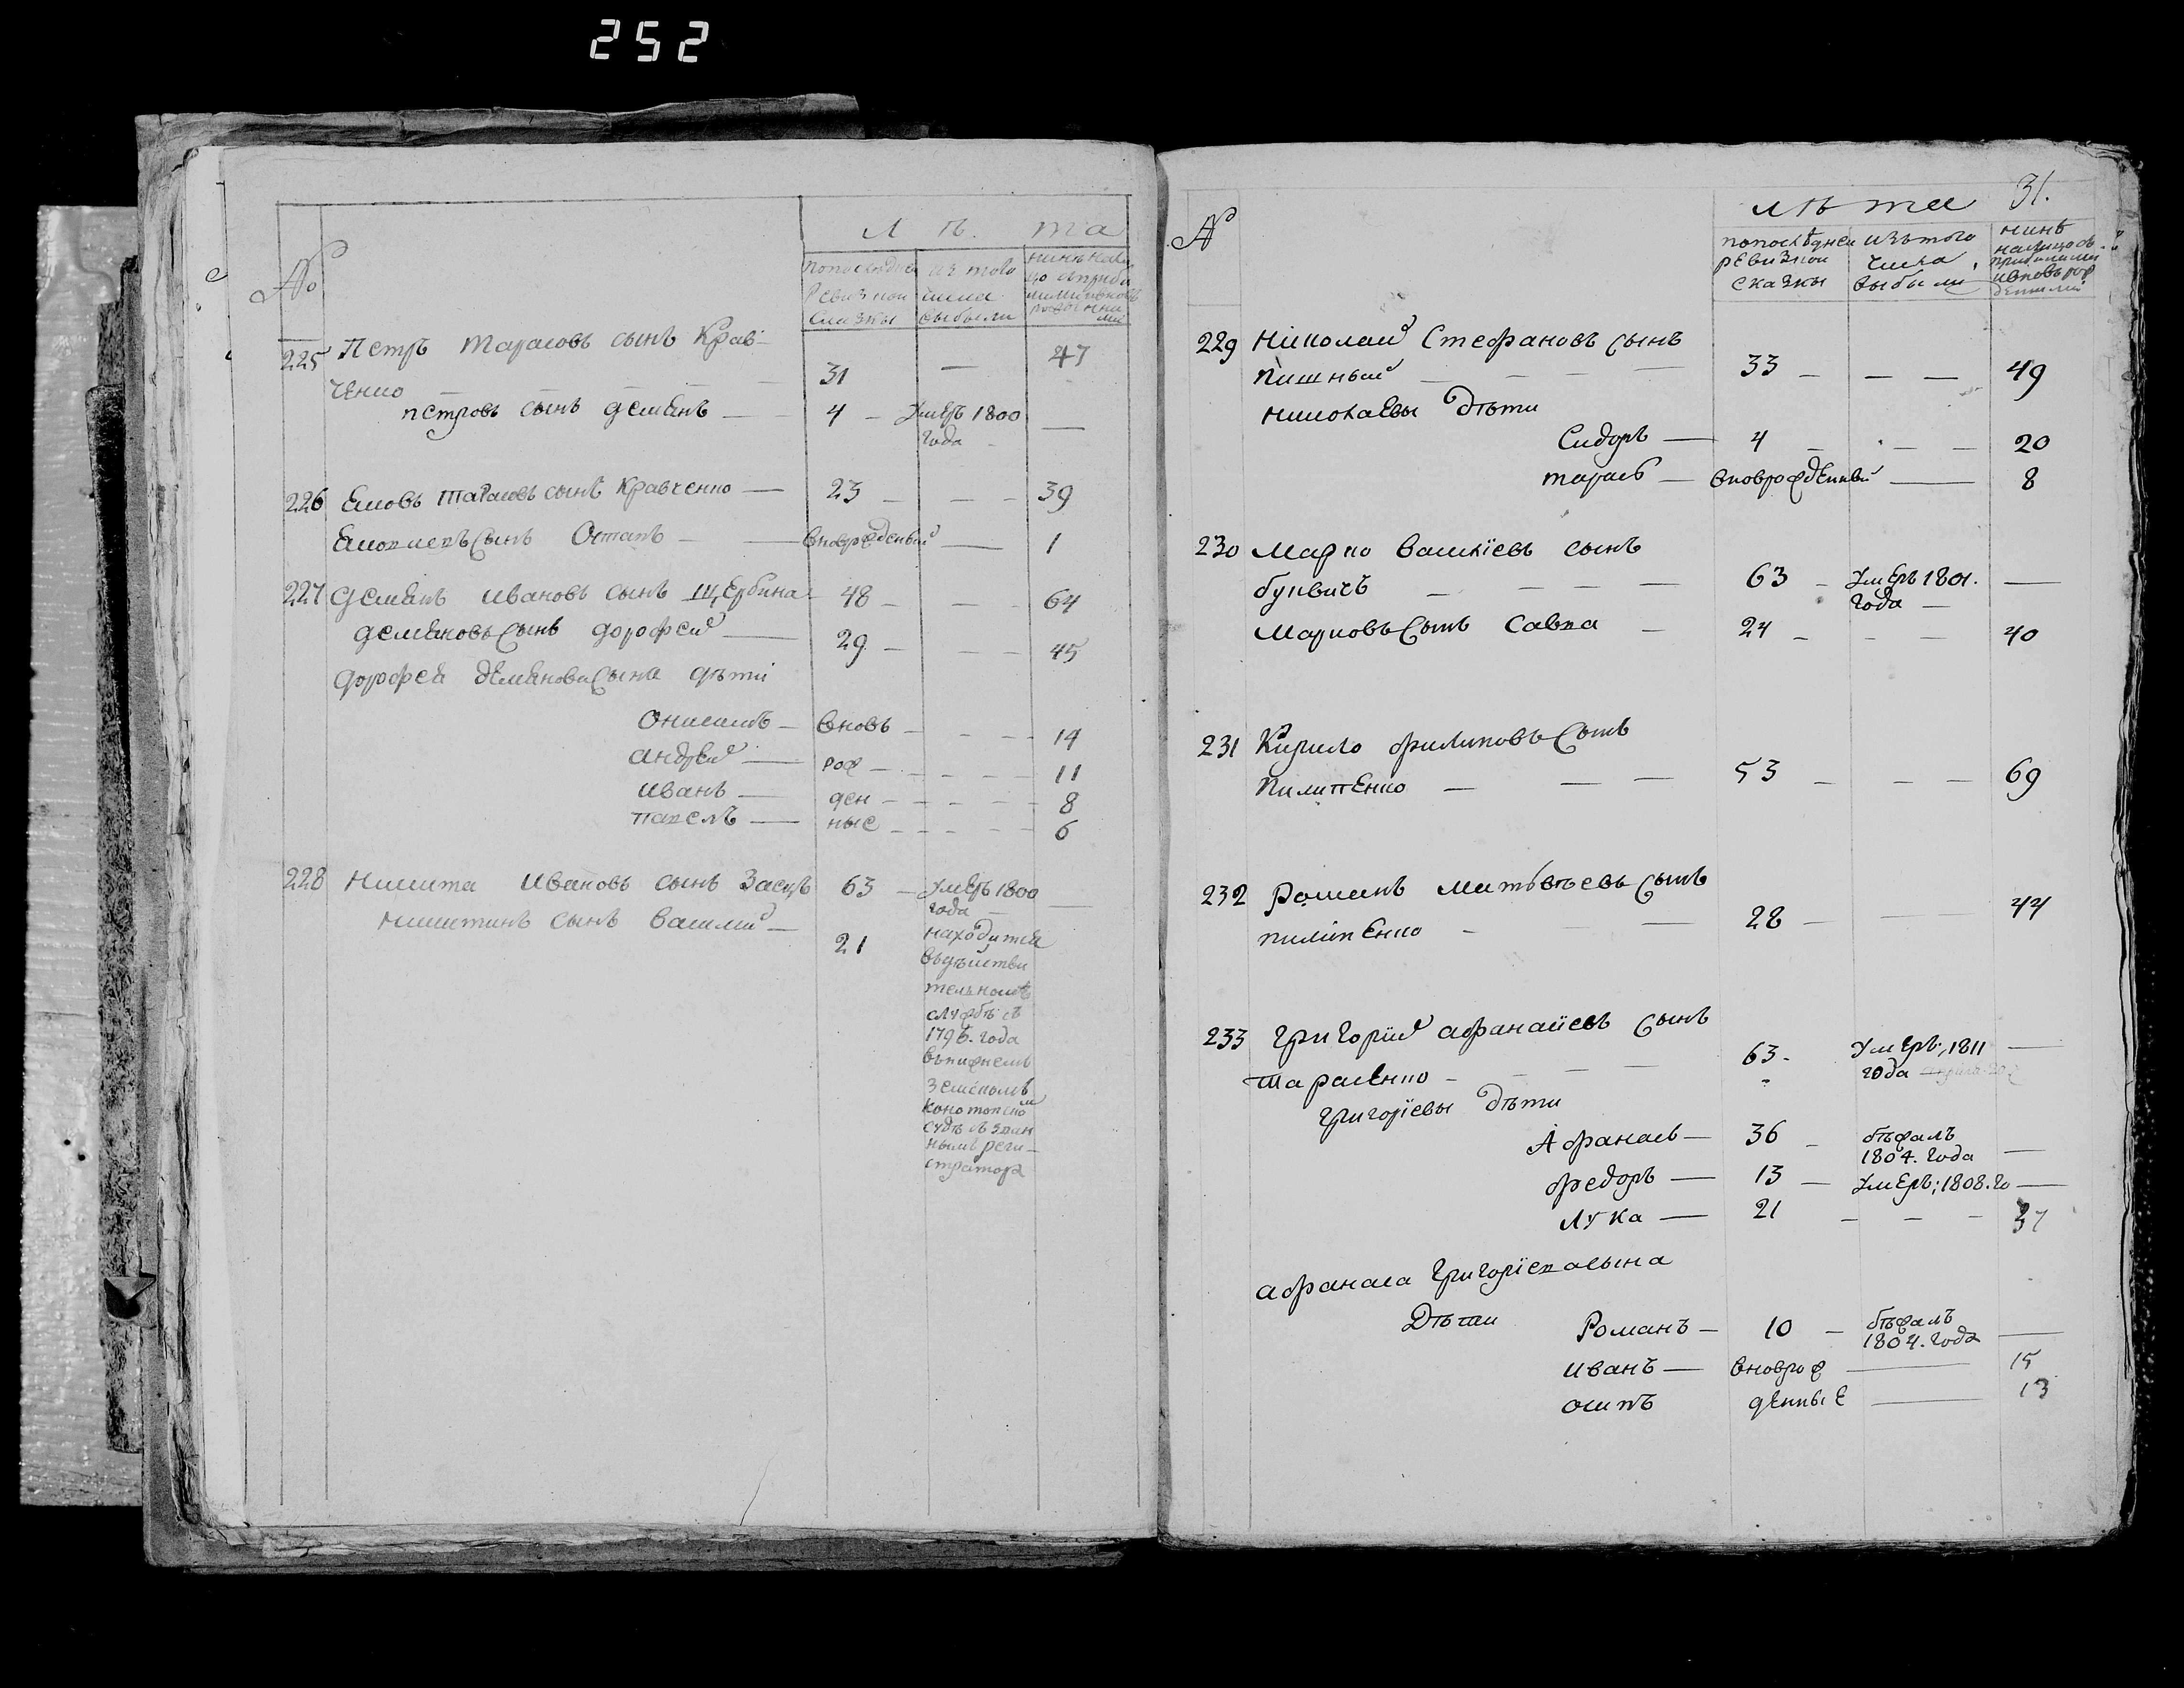 252
№
Л ѣ. та
попоследней
Ревизкои
сказки
из того
числа
выбыли
нинѣ нали
цо съприбы
лими ивновь
рожденни
ми
225 Петръ тарасовъ сынъ Крав-
ченко — 31 — 47
петровъ сынъ демянъ — 4 — Умеръ 1800
года —
226 Яковъ тарасовъ сынъ Кравченко — 23 — 39
Яковлевъ сынъ Остапъ — вноврожденый — 1
227 Демянъ ивановъ сынъ Щербина 48 — 64
демяновъ сынъ дорофей — 29 — 45
дорофея демянова сына дѣти
Онисимъ — вновь — 14
андрей — рож — 11
иванъ — ден — 8
павелъ — ные — 6
228 никита ивановъ сынъ Заецъ 63 — Умеръ 1800
года —
никитинъ сынъ василий — 21
находится
въдѣистви
телъной
службѣ съ
1796. года
внижнемъ
земскомъ
конотопском
судѣ
нымъ реги-
стратора
31.
№
лѣта
попослѣдней
ревизкои
сказки
изътого
числа
выбыли
нинѣ
налицо съ
прибилими
ивновь рож
денними
229 николай Стефановъ сынъ
пишный — 33 — 49
николаевы дѣти
Сидоръ — 4 — 20
тарасъ — вноврожденный — 8
230 марко василiевъ сынъ
буквичъ — 63 — Умеръ 1801.
года —
марковъ сынъ савка — 24 — 40
231 Кирило филиповъ сынъ
пилипенко — 53 — 69
232 Романъ матвѣевъ сынъ
пилипенко — 28 — 44
233 григорiй афанаiсевъ сынъ
тарасенко — 63 — Умеръ, 1811
года
григорiевы дѣти
Афанасъ — 36 — бѣжалъ
1804. года —
федоръ — 13 — Умеръ; 1808. го —
лука — 21 — 37
афанаса григорiевасына
Дѣти Романъ — 10 — бѣжалъ
1804. года —
иванъ — вноврож — 15
осипъ денные — 13